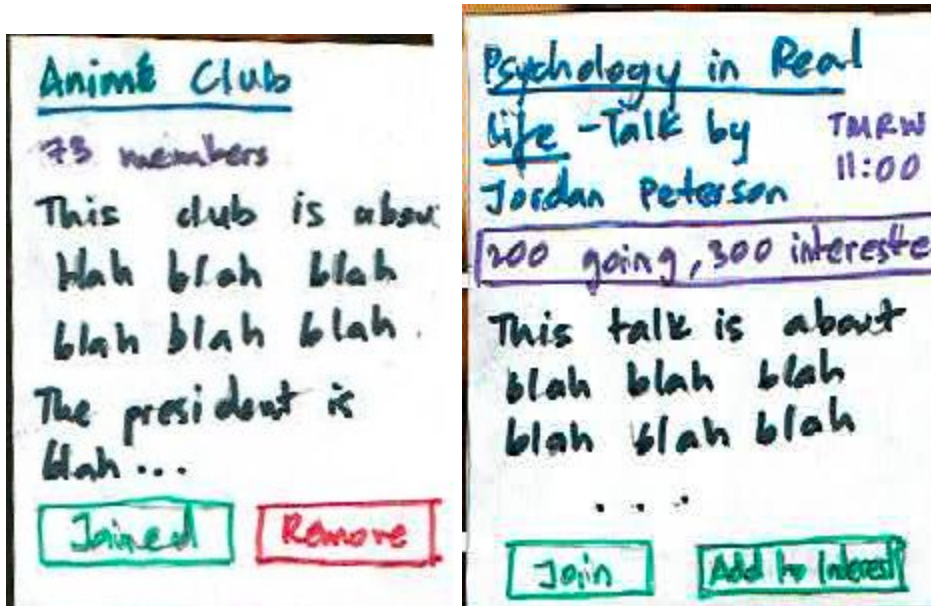 Animé Club
73 members
This club is abou
blah blah blah
blah blah blah.
The president is
blah...
Joined
Remove
Psychology in Real
Life - Talk by
Jordan Peterson
TMRW
11:00
200 going, 300 intereste
This talk is about
blah blah blah
blah blah blah
...
Join
Add to Interest